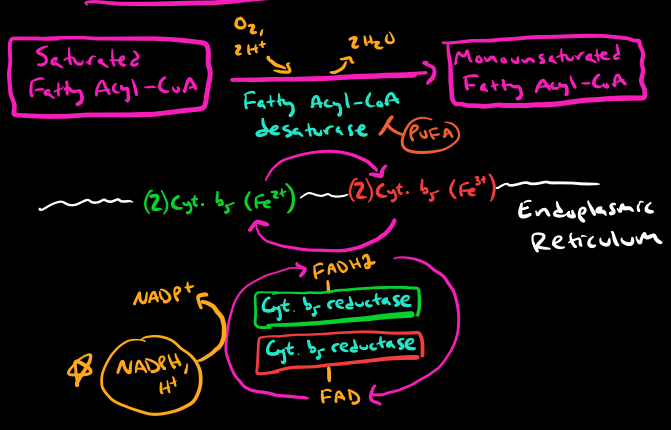 O₂,
2H⁺
2H₂O
Saturated
Fatty Acyl-CoA
Monounsaturated
Fatty Acyl-CoA
Fatty Acyl-CoA
desaturase
PUFA
(2)Cyt. b₅ (Fe²⁺)
(2)Cyt. b₅ (Fe³⁺)
Endoplasmic
Reticulum
FADH2
NADP+
Cyt. b₅ reductase
Cyt. b₅ reductase
NADPH,
H⁺
FAD